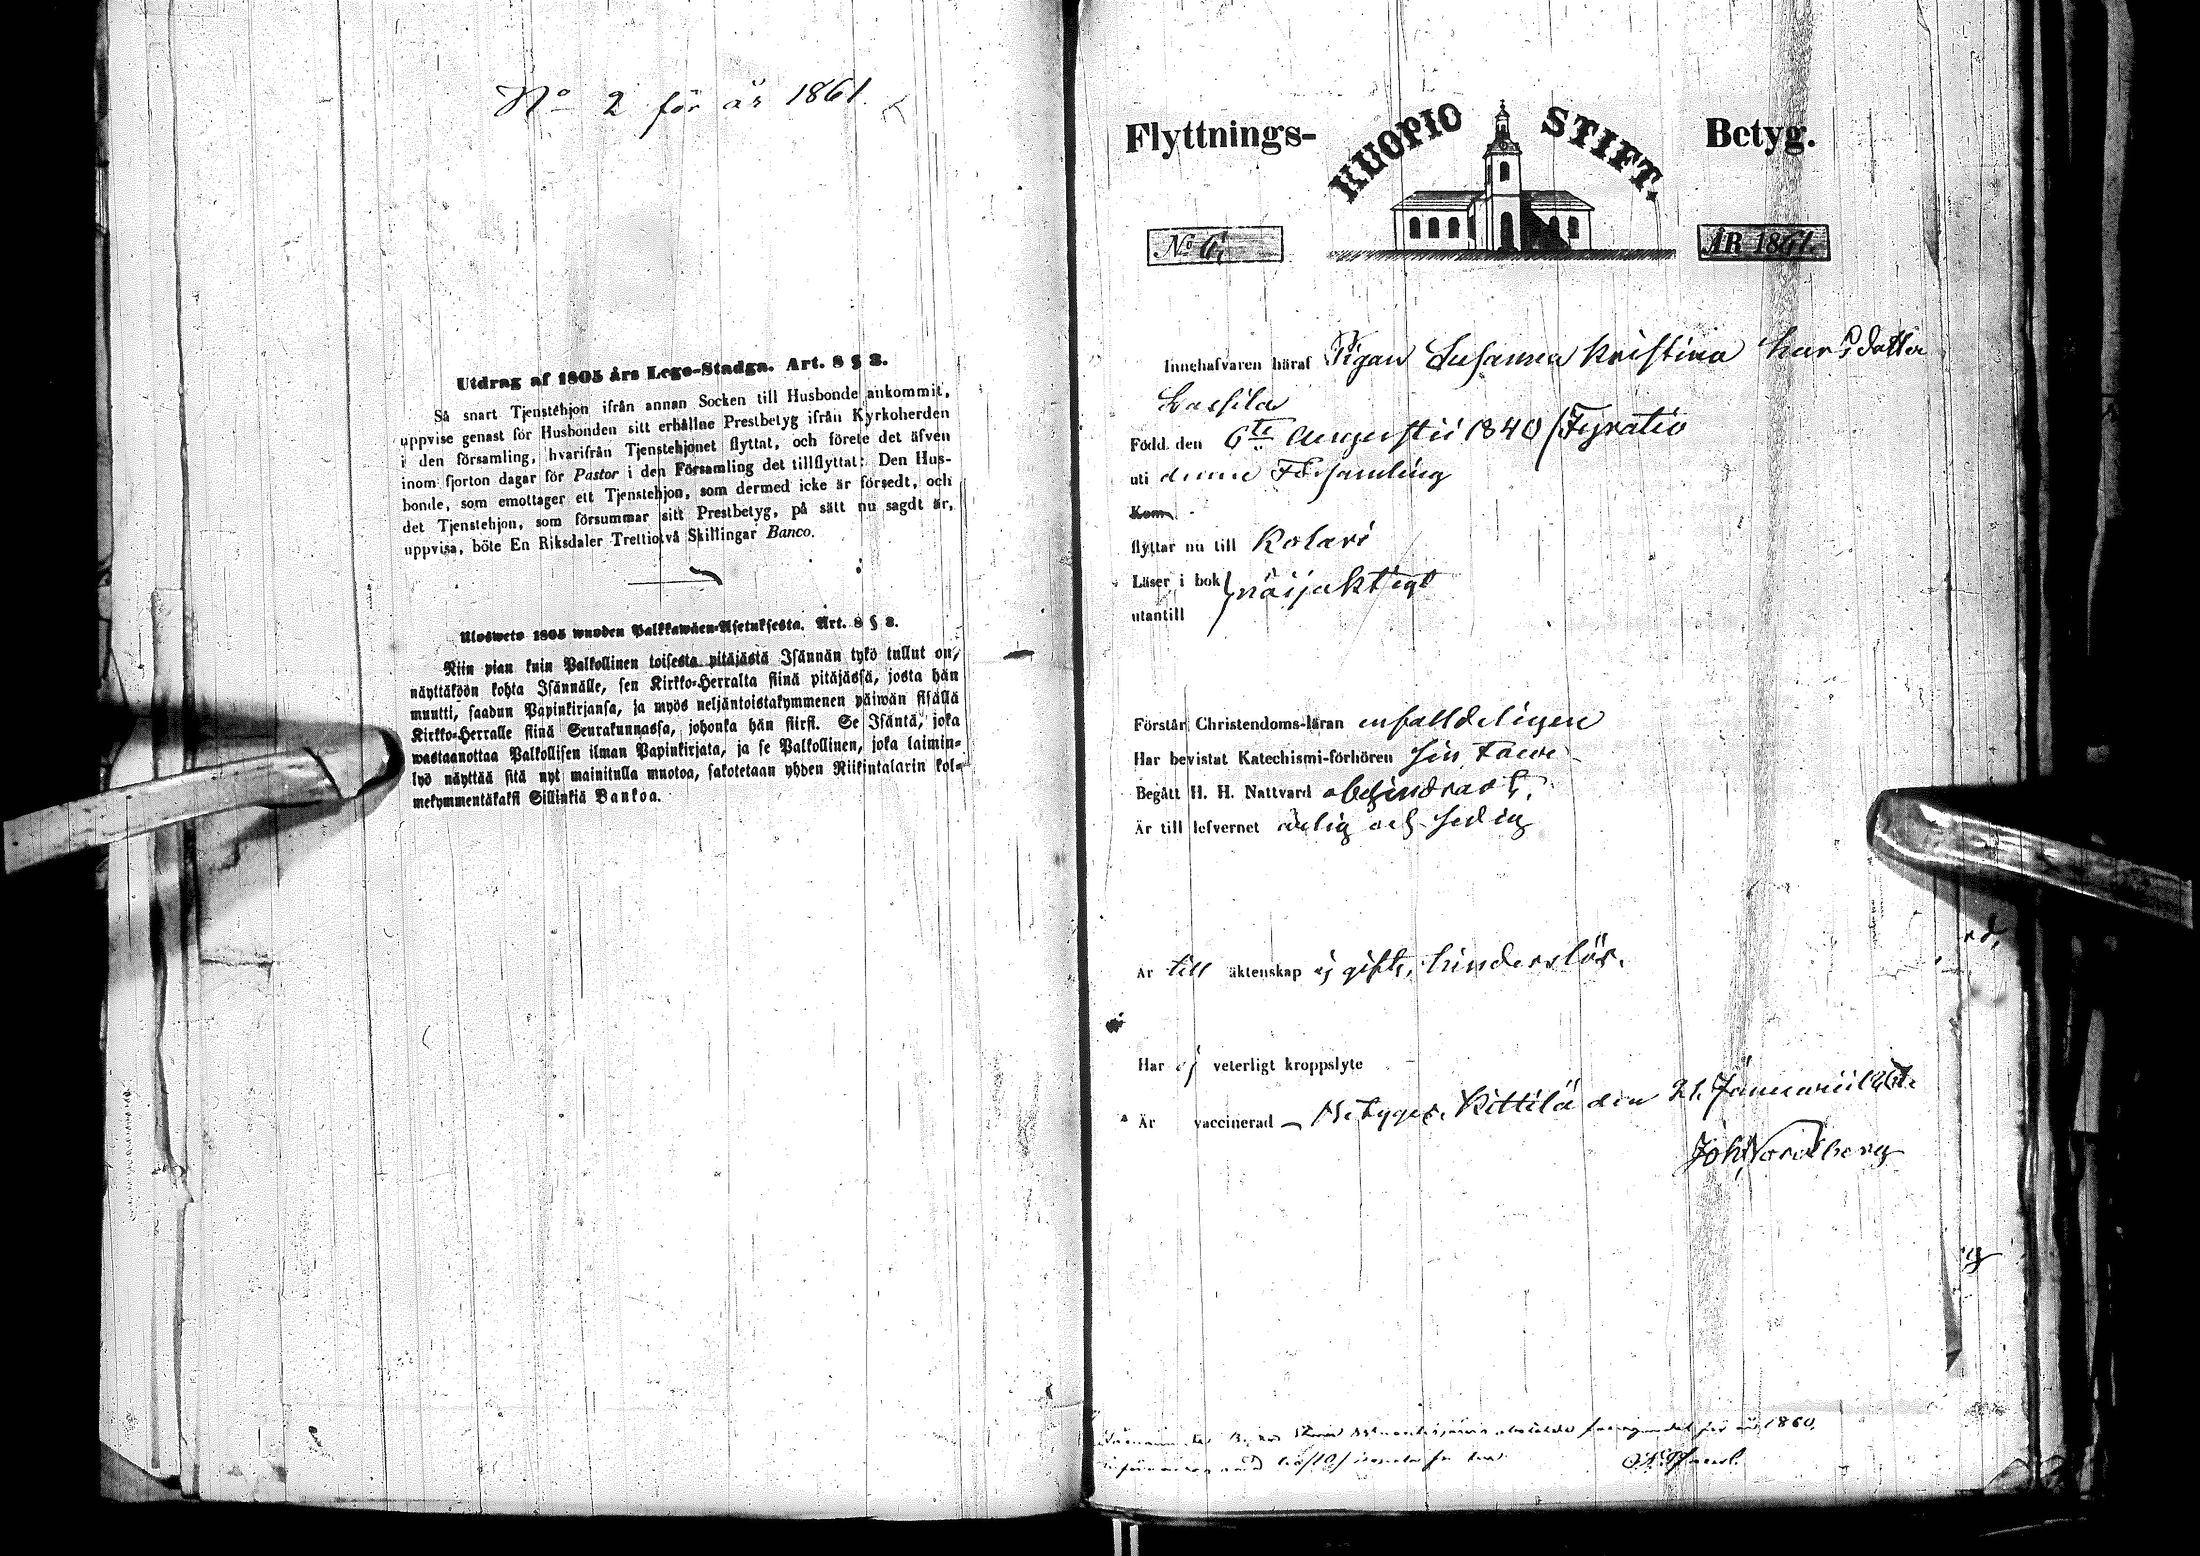 No 2 för år 1861.
Utdrag af 1805 års Lego-Stadga. Art. 8 § 3.
Så snart Tjenstehjon ifrån annan Socken till Husbonde ankommit,
uppvise genast för Husbonden sitt erhållne Prestbetyg ifrån Kyrkoherden
i den församling, hvarifrån Tjenstehjonet flyttat, och förete det äfven
inom fjorton dagar för Pastor i den Församling det tillflyttat: Den Hus-
bonde, som emottager ett Tjenstehjon, som dermed icke är försedt, och
det Tjenstehjon, som försummar sitt Prestbetyg, på sätt nu sagdt är,
uppvisa, böte En Riksdaler Trettiotvå Skillingar Banco.
Ulosweto 1805 wuoden Palkkawäen-Asetuksesta. Art. 8 § 3.
Niin pian kuin Palkollinen toisesta pitäjästä Isännän tykö tullut on,
näyttäköön kohta Isännälle, sen Kirkko-Herralta siinä pitäjässä, josta hän
muutti, saadun Papinkirjansa, ja myös neljäntoistakymmenen päiwän sisällä
Kirkko-Herralle siinä Seurakunnassa, johonka hän siirsi. Se Isäntä, joka
wastaanottaa Palkollisen ilman Papinkirjata, ja se Palkollinen, joka laimin-
lyö näyttää sitä nyt mainitulla muotoa, sakotetaan yhden Riikintalarin kol-
mekymmentäkaksi Sillinkiä Bankoa.
Flyttnings- KUOPIO STIFT. Betyg.
No 6, ÅR 1861.
Innehafvaren häraf Pigan Susanna Kristina Larsdotter
Född den 6te Augustii 1840 /Fyratio
uti denna Församling
Kom
flyttar nu till Kolari
Läser i bok
utantill
Förstår Christendoms-läran enfalldeligen
Har bevistat Katechismi-förhören
Begått H. H. Nattvard obehindradt.
Är till lefvernet ärlig och sedig
Är till äktenskap ej gift, hinderslös.
Har ej veterligt kroppslyte
Är vaccinerad – Betygar. Kittilä den 21. Januarii 1861.
Joh. Nordberg
för år 1860